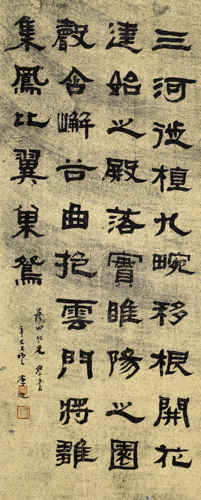 三河徙植九畹移根開花
建始之殿落實睢陽之園
聲含嶰谷曲抱雲門將雛
集鳳比翼巢鴛
仁兄